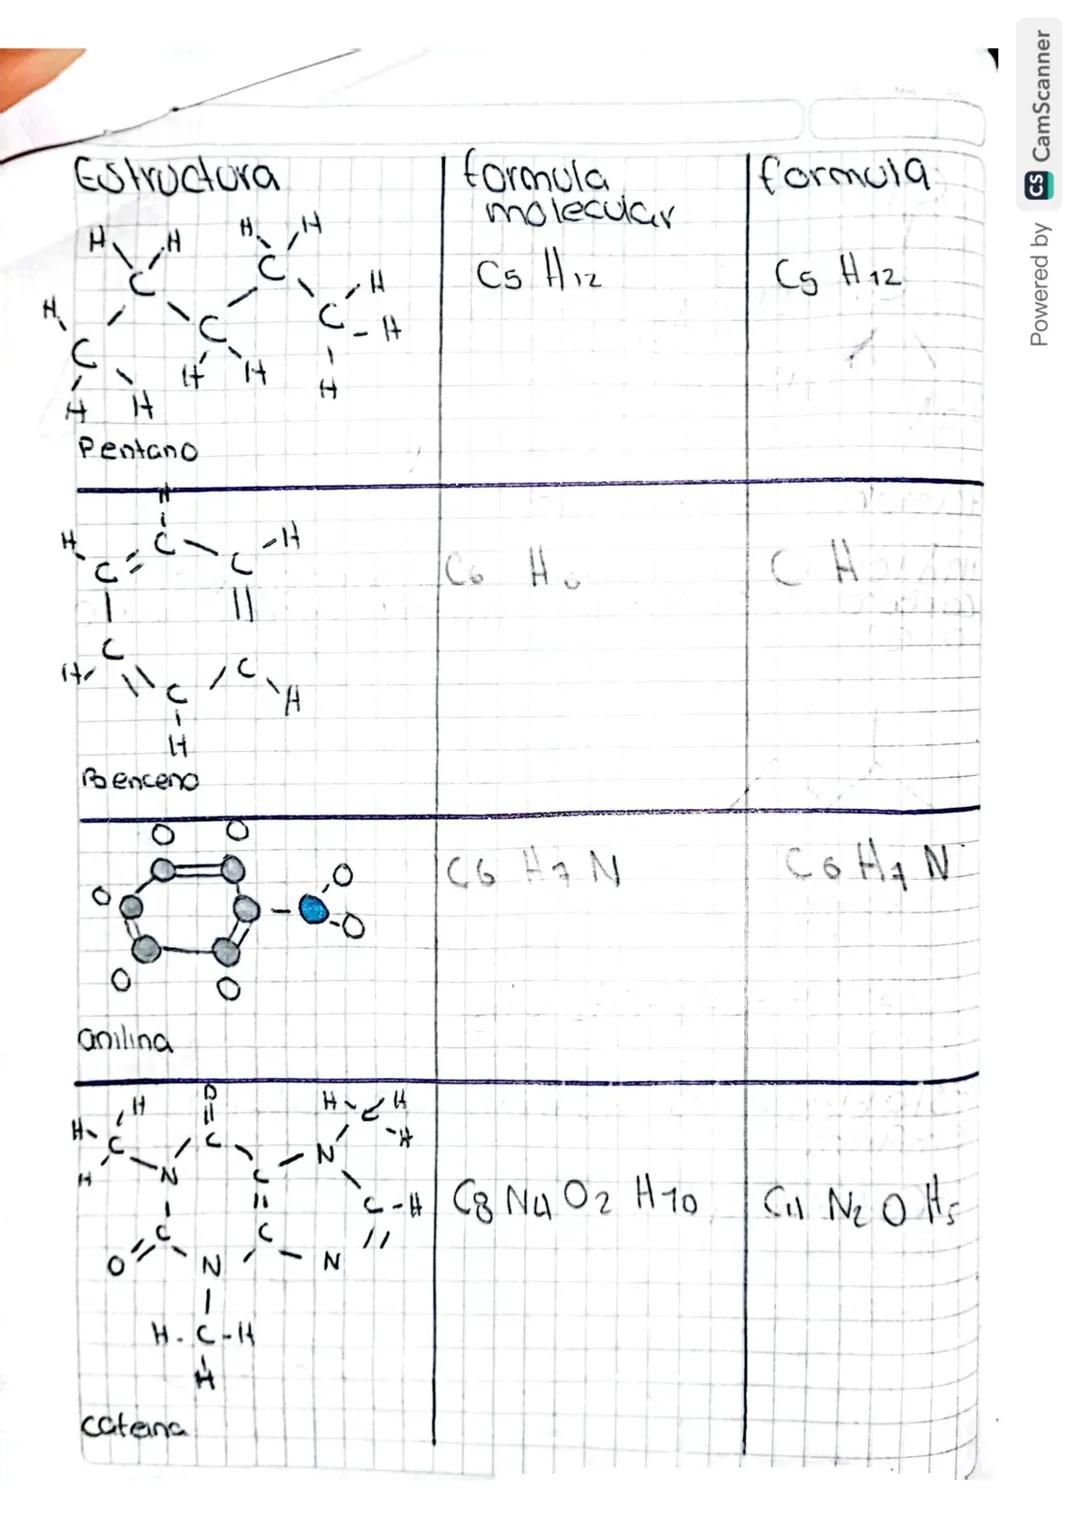 Estructura
formula
molecular
formula
H H H H
C C
H C C H
C H
H H H H H
Pentano
C5 H12
C5 H12
H
H C C H
C
C C
H C H
H
Benceno
C6 H6
C H
O O
O O
O
O O
anilina
C6 H7 N
C6 H7 N
H O H C H
H C C N H
H N C C - H
C C
O N N
H - C - H
H
cafeina
C8 N4 O2 H10
C4 N2 O H5
Powered by CS CamScanner